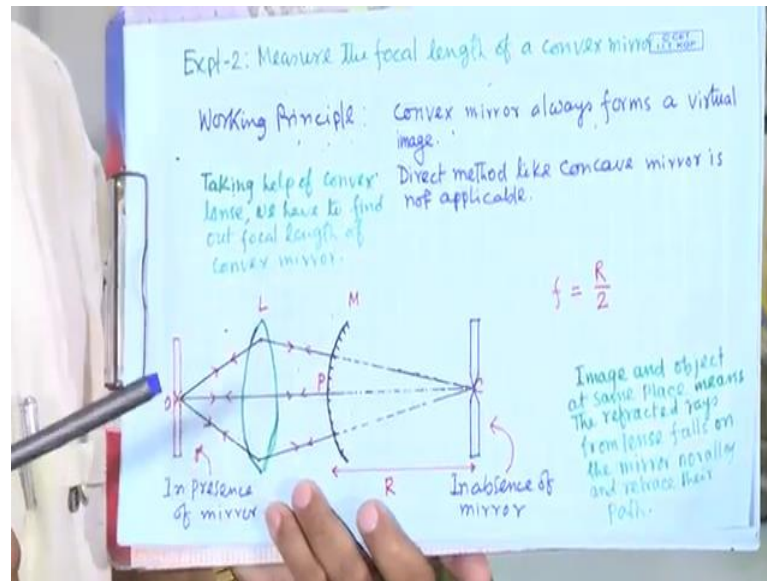 Expt-2: Measure the focal length of a convex mirror
CCET
I.I.T. KGP
Working Principle: Convex mirror always forms a virtual
image.
Direct method like Concave mirror is
not applicable.
Taking help of convex
lense, we have to find
out focal length of
convex mirror.
f = R/2
L
M
O
P
C
R
In presence
of mirror
In absence of
mirror
Image and object
at same place means
The refracted rays
from lense falls on
the mirror norally
and retrace their
path.